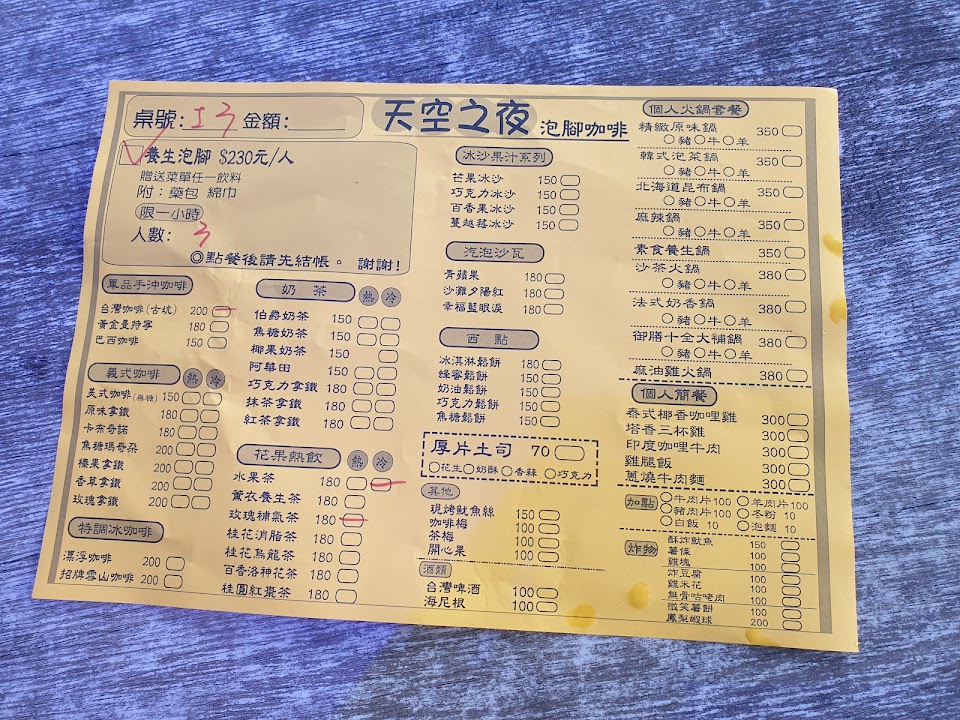 桌號: 13 金額:
天空之夜 泡腳咖啡
養生泡腳 $230元/人
贈送菜單任一飲料
附: 藥包 綿巾
限一小時
人數: 3
◎點餐後請先結帳。 謝謝!
單品手沖咖啡
台灣咖啡(古坑) 200
黃金曼特寧 180
巴西咖啡 150
義式咖啡 熱 冷
美式咖啡(無糖) 150
原味拿鐵 180
卡布奇諾 180
焦糖瑪奇朵 200
榛果拿鐵 200
香草拿鐵 200
玫瑰拿鐵 200
特調冰咖啡
漂浮咖啡 200
招牌雪山咖啡 200
奶茶 熱 冷
伯爵奶茶 150
焦糖奶茶 150
椰果奶茶 150
阿華田 150
巧克力拿鐵 180
抹茶拿鐵 180
紅茶拿鐵 180
花果熱飲 熱 冷
水果茶 180
薰衣養生茶 180
玫瑰補氣茶 180
桂花消脂茶 180
桂花烏龍茶 180
百香洛神花茶 180
桂圓紅棗茶 180
冰沙果汁系列
芒果冰沙 150
巧克力冰沙 150
百香果冰沙 150
蔓越莓冰沙 150
汽泡沙瓦
青蘋果 180
沙灘夕陽紅 180
幸福藍眼淚 180
西點
冰淇淋鬆餅 180
蜂蜜鬆餅 150
奶油鬆餅 150
巧克力鬆餅 150
焦糖鬆餅 150
厚片土司 70
花生 奶酥 香蒜 巧克力
其他
現烤魷魚絲 150
咖啡梅 100
茶梅 100
開心果 100
酒類
台灣啤酒 100
海尼根 100
個人火鍋套餐
精緻原味鍋 350
豬 牛 羊
韓式泡菜鍋 350
豬 牛 羊
北海道昆布鍋 350
豬 牛 羊
麻辣鍋 350
豬 牛 羊
素食養生鍋 350
沙茶火鍋 380
豬 牛 羊
法式奶香鍋 380
豬 牛 羊
御膳十全大補鍋 380
豬 牛 羊
麻油雞火鍋 380
個人簡餐
泰式椰香咖哩雞 300
塔香三杯雞 300
印度咖哩牛肉 300
雞腿飯 300
蔥燒牛肉麵 300
加點 牛肉片100 羊肉片100
豬肉片100 冬粉 10
白飯 10 泡麵 10
炸物 酥炸魷魚 150
薯條 100
雞塊 100
炸豆腐 100
雞米花 100
無骨咕咾肉 100
微笑薯餅 100
鳳梨蝦球 200